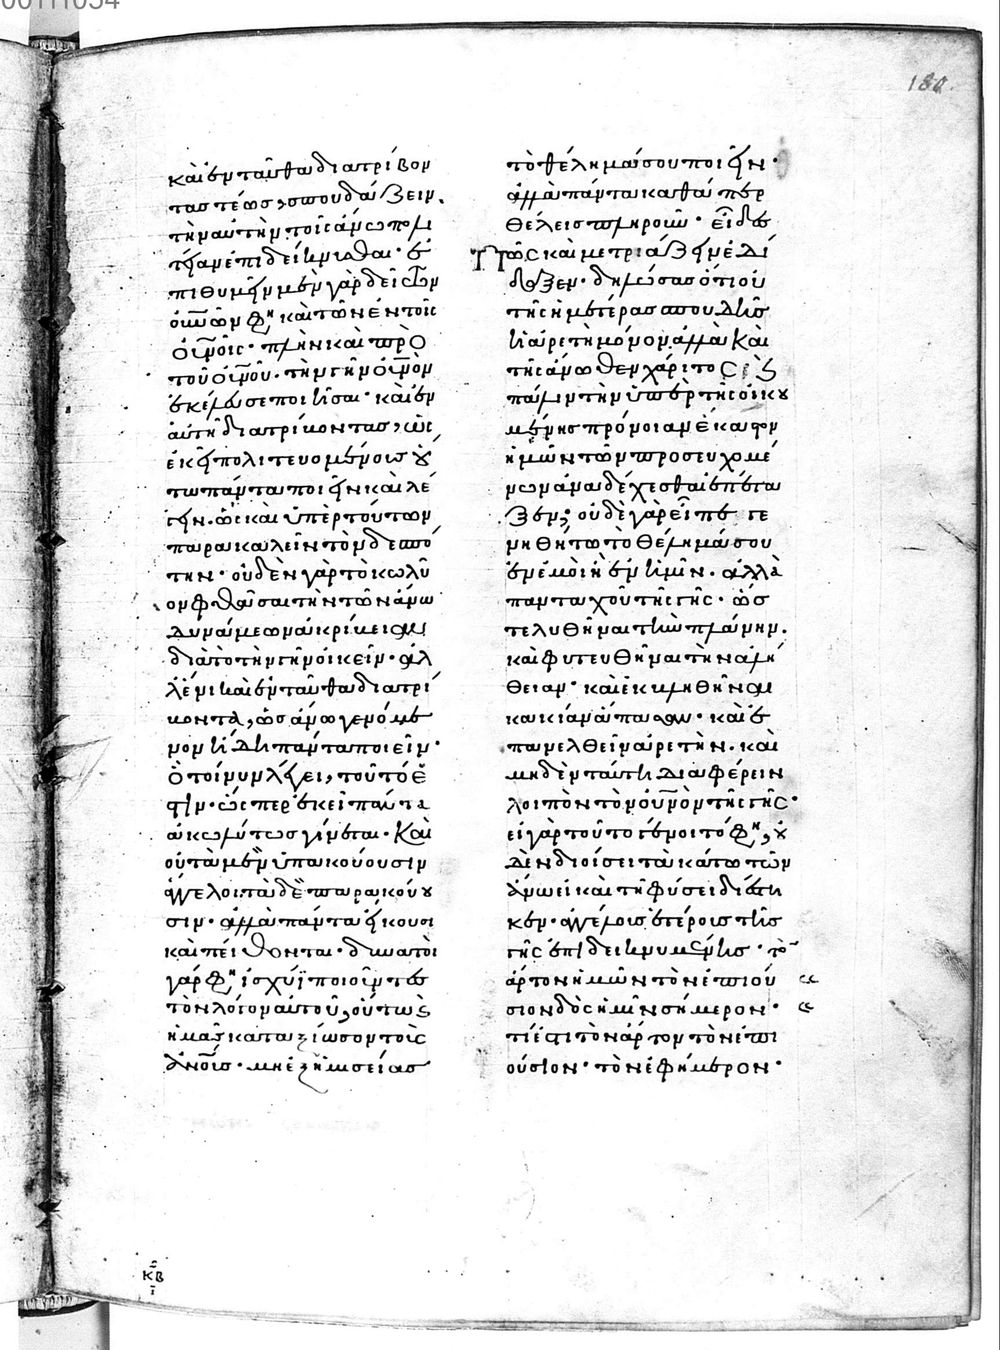 180
καὶ ἐνταῦθα διατρίβον
τας τέως, σπουδάζειν
τὴν αὐτὴν τοῖς ἄνω πολι
τείαν ἐπιδείκνυσθαι· ἐ
πιθυμεῖν μὲν γὰρ δεῖ τῶν
οὐνῶν φη, καὶ τῶν ἐν τοῖς
οὐνοῖς· πλὴν καὶ πρὸ
τοῦ οὐνοῦ· τὴν γῆν οὐνὸν
ἐκέλευσε ποιῆσαι· καὶ ἐν
αὐτῆ διατρίβοντας, ὡς
ἐκεῖ πολιτευομένους οὕ
τω πάντα ποιεῖν καὶ λέ
γειν. ὡς καὶ ὑπὲρ τούτων
παρακαλεῖν τὸν δεσπό
την· οὐδὲν γὰρ τὸ κωλῦ
ον φθάσαι τὴν τῶν ἄνω
δυνάμεων ἀκρίβειαν
διὰ τὸ τὴν γῆν οἰκεῖν· ἀλ
λ' ἔνι καὶ ἐνταῦθα διατρί
βοντα, ὡς ἄνω γενόμε
νον ἤδη πάντα ποιεῖν·
Ὃ τοίνυν λέγει, τοῦτό ἐ
στιν· ὥσπερ ἐκεῖ πάντα
ἀκωλύτως γίνεται· Καὶ
οὐ τὰ μὲν ὑπακούουσιν
ἄγγελοι τὰ δὲ παρακούου
σιν· ἀλλὰ πάντα εἴκουσι
καὶ πείθονται· δυνατοὶ
γάρ φη ἰσχύϊ ποιοῦντες
τὸν λόγον αὐτοῦ, οὕτως
ἡμᾶς καταξίωσον τοὺς
ἀνους· μὴ ἐξ ἡμισείας
τὸ θέλημά σου ποιεῖν·
ἀλλὰ πάντα καθάπερ
θέλεις πληροῦν· εἶδες
Πῶς καὶ μετριάζειν ἐδί
δαξεν· δηλώσας ὅτι οὐ
τῆς ἡμετέρας σπουδῆς
ἡ ἀρετὴ μόνον ἀλλὰ Καὶ
τῆς ἄνωθεν χάριτος· ἐς
πάλιν τὴν ὑπὲρ τῆς οἰκου
μένης πρόνοιαν ἕκαστον
ἡμῶν τῶν προσευχομέ
νων ἀναδέχεσθαι ἐπέτα
ξεν; οὐδὲ γὰρ εἶπε γε
νηθήτω τὸ θέλημά σου
ἐν ἐμοὶ ἢ ἐν ἡμῖν· ἀλλὰ
πανταχοῦ τῆς γῆς· ὥσ
τε λυθῆναι τὴν πλάνην.
καὶ φυτευθῆναι τὴν ἀλή
θειαν· καὶ ἐκβληθῆναι
κακίαν ἅπασαν· καὶ ἐ
πανελθεῖν ἀρετὴν· καὶ
μηδὲν ταύτη διαφέρειν
λοιπὸν τὸν οὐνὸν τῆς γῆς·
εἰ γὰρ τοῦτο γένοιτό φη, οὐ
δὲν διοίσει τὰ κάτω τῶν
ἄνω εἰ καὶ τῆ φύσει διέστη
κεν· ἀγγέλους ἑτέρους τῆς
γῆς ἐπιδεικνυμένης· τὸ
ἄρτον ἡμῶν τὸν ἐπιού
σιον δὸς ἡμῖν σήμερον·
τί ἐστι τὸν ἄρτον τὸν ἐπι
ούσιον· τὸν ἐφήμερον·
κβ